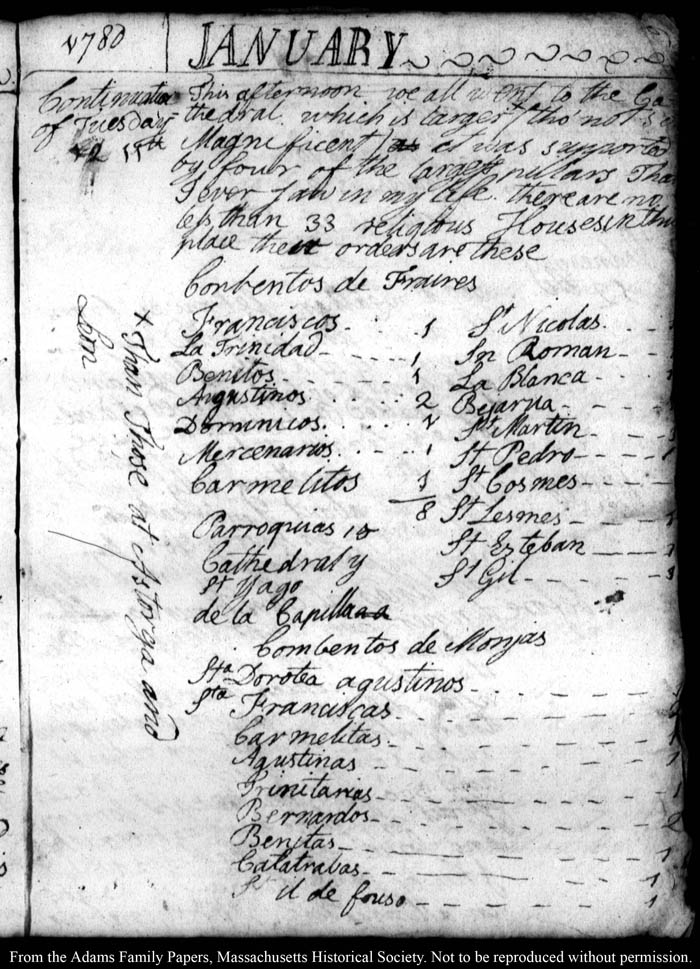 1780 JANUARY
Continuation
of Tuesday
11th
This afternoon we all went to the Ca
thedral which is larger (tho' not so
Magnificent) it was supported
by four of the largest pillars Tha
I ever saw in my life. there are no
less than 33 religious Houses in this
place their orders are these
Conbentos de Fraires
Franciscos 1
La Trinidad 1
Benitos 1
Augustinos 2
Dominicos 1
Mercenarios 1
Carmelitos 1
8
Parroquias 15
Cathedral y
St. Yago
de la Capilla
St. Nicolas
Sn Roman
La Blanca
Bejarua
St. Martin
St Pedro
St Cosmes
St Lesmes
St Esteban
St Gil
Combentos de Monjas
Sta Dorotea agustinos
Sta Franciscas
Carmelitas
Agustinas
Trinitarias 1
Bernardos 2
Benitas 1
Calatrabas 1
il de fouso 1
+ Than Those at Astorga and
Leon
From the Adams Family Papers, Massachusetts Historical Society. Not to be reproduced without permission.